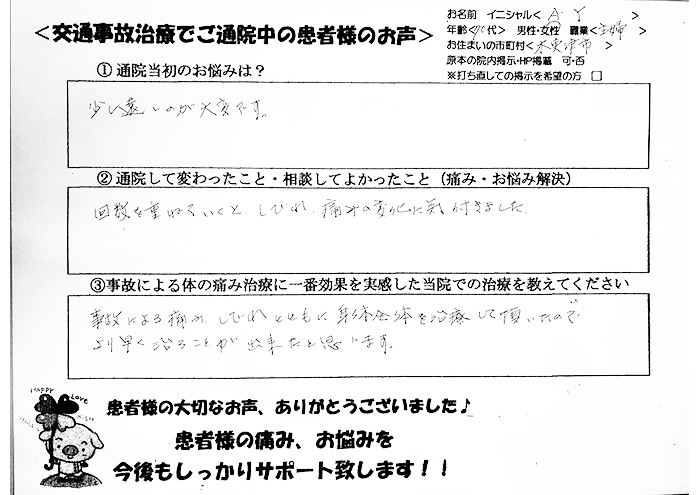 お名前 イニシャル< A・Y >
＜交通事故治療でご通院中の患者様のお声＞
年齢<70代> 男性・女性 職業<主婦>
お住まいの市町村<木更津市>
原本の院内掲示・HP掲載 可・否
※打ち直しての掲示を希望の方 □
①通院当初のお悩みは？
少し遠いのが大変です。
②通院して変わったこと・相談してよかったこと（痛み・お悩み解決）
回数を重ねていくと、しびれ、痛みの変化に気付きました。
③事故による体の痛み治療に一番効果を実感した当院での治療を教えてください
事故による痛み、しびれとともに身体全体を治療して頂いたので
より早く治ることが出来たと思います。
HAPPY
LOVE
患者様の大切なお声、ありがとうございました♪
患者様の痛み、お悩みを
今後もしっかりサポート致します！！